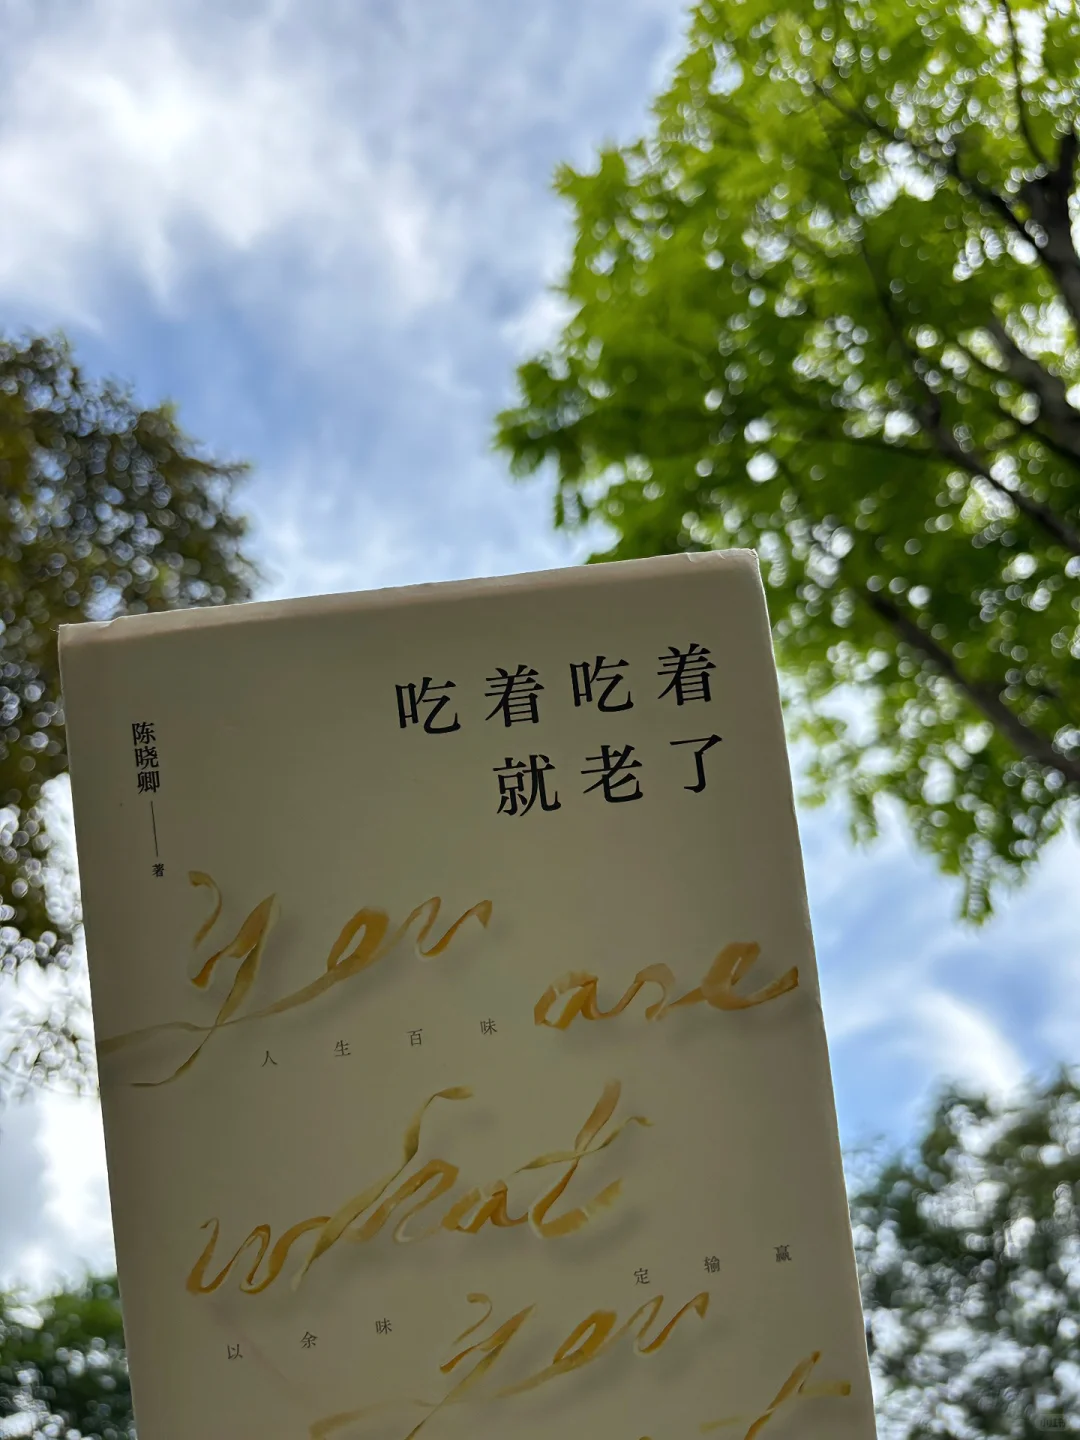 吃着吃着
就老了
陈晓卿——著
you are
人生百味
what
定输赢
以余味
you